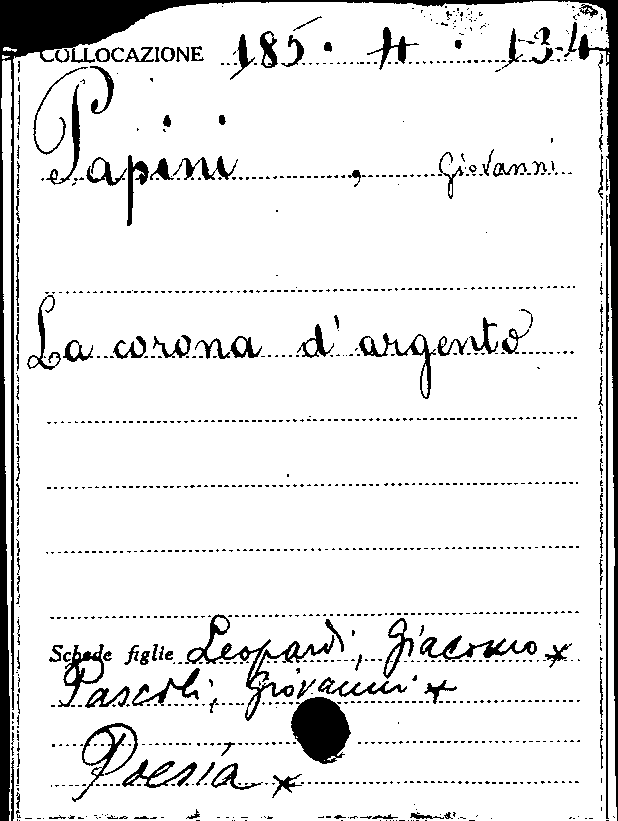 COLLOCAZIONE 185 · 4 · 134
Papini , Giovanni
La corona d'argento
Schede figlie Leopardi, Giacomo x
Pascoli, Giovanni x
Poesia x